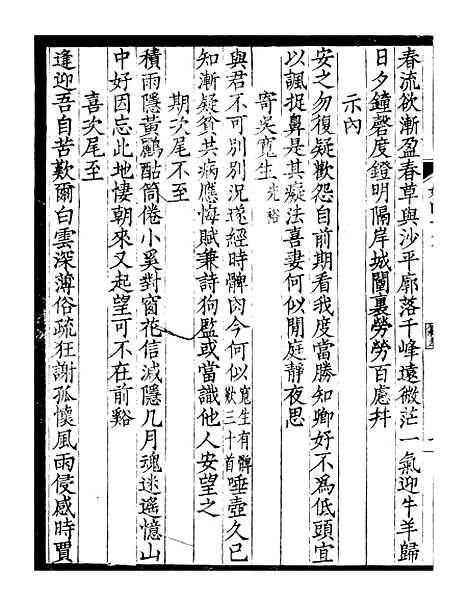 春流欲漸盈春草與沙平廓落千峰遠微茫一氣迎牛羊歸
日夕鐘磬度鐙明隔岸城闉裏勞勞百慮幷
示內
安之勿復疑歡怨自前期看我度當勝知卿好不爲低頭宜
以諷捉鼻是其癡法喜妻何似閒庭靜夜思
寄吳寬生光裕
與君不可別別況遂經時髀肉今何似寬生有髀歎三十首唾壺久已
知漸疑貧共病應悔賦兼詩狗監或當識他人安望之
期次尾不至
積雨隱黃鸝酤筒倦小奚對窗花信減隱几月魂迷遙憶山
中好因忘此地悽朝來又起望可不在前谿
喜次尾至
逢迎吾自苦歎爾白雲深薄俗疏狂謝孤懷風雨侵感時賈